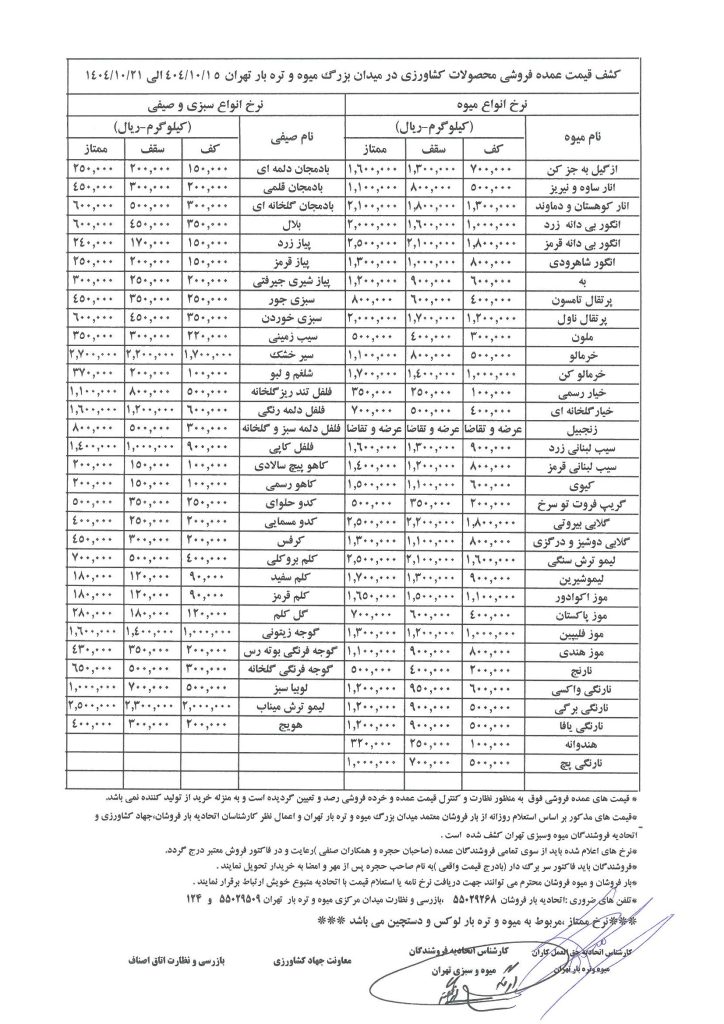 کشف قیمت عمده فروشی محصولات کشاورزی در میدان بزرگ میوه و تره بار تهران ۴۰۴/۱۰/۱۵ الی ۱۴۰۴/۱۰/۲۱
نرخ انواع میوه نرخ انواع سبزی و صیفی
نام میوه (کیلوگرم-ریال) نام صیفی (کیلوگرم-ریال)
کف سقف ممتاز کف سقف ممتاز
ازگیل به جز کن ۷۰۰,۰۰۰ ۱,۳۰۰,۰۰۰ ۱,۶۰۰,۰۰۰ بادمجان دلمه ای ۱۵۰,۰۰۰ ۲۰۰,۰۰۰ ۲۵۰,۰۰۰
انار ساوه و نیریز ۵۰۰,۰۰۰ ۸۰۰,۰۰۰ ۱,۱۰۰,۰۰۰ بادمجان قلمی ۲۰۰,۰۰۰ ۳۰۰,۰۰۰ ۴۵۰,۰۰۰
انار کوهستان و دماوند ۱,۳۰۰,۰۰۰ ۱,۸۰۰,۰۰۰ ۲,۱۰۰,۰۰۰ بادمجان گلخانه ای ۳۰۰,۰۰۰ ۵۰۰,۰۰۰ ۶۰۰,۰۰۰
انگور بی دانه زرد ۱,۰۰۰,۰۰۰ ۱,۶۰۰,۰۰۰ ۲,۰۰۰,۰۰۰ بلال ۳۵۰,۰۰۰ ۴۵۰,۰۰۰ ۶۰۰,۰۰۰
انگور بی دانه قرمز ۱,۸۰۰,۰۰۰ ۲,۱۰۰,۰۰۰ ۲,۵۰۰,۰۰۰ پیاز زرد ۱۵۰,۰۰۰ ۱۷۰,۰۰۰ ۲۴۰,۰۰۰
انگور شاهرودی ۸۰۰,۰۰۰ ۱,۰۰۰,۰۰۰ ۱,۳۰۰,۰۰۰ پیاز قرمز ۱۵۰,۰۰۰ ۲۰۰,۰۰۰ ۲۵۰,۰۰۰
به ۶۰۰,۰۰۰ ۹۰۰,۰۰۰ ۱,۲۰۰,۰۰۰ پیاز شیری جیرفتی ۲۰۰,۰۰۰ ۲۵۰,۰۰۰ ۳۰۰,۰۰۰
پرتقال تامسون ۴۰۰,۰۰۰ ۶۰۰,۰۰۰ ۸۰۰,۰۰۰ سبزی جور ۲۵۰,۰۰۰ ۳۵۰,۰۰۰ ۴۵۰,۰۰۰
پرتقال ناول ۱,۲۰۰,۰۰۰ ۱,۷۰۰,۰۰۰ ۲,۰۰۰,۰۰۰ سبزی خوردن ۳۵۰,۰۰۰ ۴۵۰,۰۰۰ ۶۰۰,۰۰۰
ملون ۳۰۰,۰۰۰ ۴۰۰,۰۰۰ ۵۰۰,۰۰۰ سیب زمینی ۲۲۰,۰۰۰ ۳۰۰,۰۰۰ ۳۵۰,۰۰۰
خرمالو ۵۰۰,۰۰۰ ۸۰۰,۰۰۰ ۱,۱۰۰,۰۰۰ سیر خشک ۱,۷۰۰,۰۰۰ ۲,۲۰۰,۰۰۰ ۲,۷۰۰,۰۰۰
خرمالو کن ۱,۰۰۰,۰۰۰ ۱,۴۰۰,۰۰۰ ۱,۷۰۰,۰۰۰ شلغم و لبو ۱۰۰,۰۰۰ ۲۰۰,۰۰۰ ۳۷۰,۰۰۰
خیار رسمی ۱۰۰,۰۰۰ ۲۵۰,۰۰۰ ۳۵۰,۰۰۰ فلفل تند ریزگلخانه ۵۰۰,۰۰۰ ۸۰۰,۰۰۰ ۱,۱۰۰,۰۰۰
خیارگلخانه ای ۴۰۰,۰۰۰ ۵۰۰,۰۰۰ ۷۰۰,۰۰۰ فلفل دلمه رنگی ۶۰۰,۰۰۰ ۱,۲۰۰,۰۰۰ ۱,۶۰۰,۰۰۰
زنجبیل عرضه و تقاضا عرضه و تقاضا عرضه و تقاضا فلفل دلمه سبز و گلخانه ۳۰۰,۰۰۰ ۵۰۰,۰۰۰ ۸۰۰,۰۰۰
سیب لبنانی زرد ۹۰۰,۰۰۰ ۱,۳۰۰,۰۰۰ ۱,۶۰۰,۰۰۰ فلفل کاپی ۹۰۰,۰۰۰ ۱,۰۰۰,۰۰۰ ۱,۴۰۰,۰۰۰
سیب لبنانی قرمز ۸۰۰,۰۰۰ ۱,۲۰۰,۰۰۰ ۱,۴۰۰,۰۰۰ کاهو پیچ سالادی ۱۰۰,۰۰۰ ۱۵۰,۰۰۰ ۲۰۰,۰۰۰
کیوی ۶۰۰,۰۰۰ ۱,۱۰۰,۰۰۰ ۱,۵۰۰,۰۰۰ کاهو رسمی ۱۰۰,۰۰۰ ۱۵۰,۰۰۰ ۲۰۰,۰۰۰
گریپ فروت تو سرخ ۲۰۰,۰۰۰ ۳۵۰,۰۰۰ ۵۰۰,۰۰۰ کدو حلوای ۲۵۰,۰۰۰ ۳۵۰,۰۰۰ ۵۰۰,۰۰۰
گلابی بیروتی ۱,۸۰۰,۰۰۰ ۲,۲۰۰,۰۰۰ ۲,۵۰۰,۰۰۰ کدو مسمایی ۲۰۰,۰۰۰ ۲۵۰,۰۰۰ ۴۰۰,۰۰۰
گلابی دوشیز و درگزی ۸۰۰,۰۰۰ ۱,۱۰۰,۰۰۰ ۱,۳۰۰,۰۰۰ کرفس ۲۰۰,۰۰۰ ۳۰۰,۰۰۰ ۴۵۰,۰۰۰
لیمو ترش سنگی ۱,۶۰۰,۰۰۰ ۲,۱۰۰,۰۰۰ ۲,۵۰۰,۰۰۰ کلم بروکلی ۴۰۰,۰۰۰ ۵۰۰,۰۰۰ ۷۰۰,۰۰۰
لیموشیرین ۹۰۰,۰۰۰ ۱,۳۰۰,۰۰۰ ۱,۷۰۰,۰۰۰ کلم سفید ۹۰,۰۰۰ ۱۲۰,۰۰۰ ۱۸۰,۰۰۰
موز اکوادور ۱,۱۰۰,۰۰۰ ۱,۵۰۰,۰۰۰ ۱,۶۵۰,۰۰۰ کلم قرمز ۹۰,۰۰۰ ۱۲۰,۰۰۰ ۱۸۰,۰۰۰
موز پاکستان ۴۰۰,۰۰۰ ۶۰۰,۰۰۰ ۷۰۰,۰۰۰ گل کلم ۱۲۰,۰۰۰ ۱۸۰,۰۰۰ ۲۸۰,۰۰۰
موز فلیپین ۱,۰۰۰,۰۰۰ ۱,۲۰۰,۰۰۰ ۱,۳۰۰,۰۰۰ گوجه زیتونی ۱,۰۰۰,۰۰۰ ۱,۴۰۰,۰۰۰ ۱,۶۰۰,۰۰۰
موز هندی ۸۰۰,۰۰۰ ۹۰۰,۰۰۰ ۱,۱۰۰,۰۰۰ گوجه فرنگی بوته رس ۲۰۰,۰۰۰ ۳۵۰,۰۰۰ ۴۳۰,۰۰۰
نارنج ۲۰۰,۰۰۰ ۴۰۰,۰۰۰ ۵۰۰,۰۰۰ گوجه فرنگی گلخانه ۳۰۰,۰۰۰ ۵۰۰,۰۰۰ ۶۵۰,۰۰۰
نارنگی واکسی ۶۰۰,۰۰۰ ۹۵۰,۰۰۰ ۱,۲۰۰,۰۰۰ لوبیا سبز ۵۰۰,۰۰۰ ۷۰۰,۰۰۰ ۱,۰۰۰,۰۰۰
نارنگی برگی ۵۰۰,۰۰۰ ۹۰۰,۰۰۰ ۱,۲۰۰,۰۰۰ لیمو ترش میناب ۲,۰۰۰,۰۰۰ ۲,۳۰۰,۰۰۰ ۲,۵۰۰,۰۰۰
نارنگی یافا ۵۰۰,۰۰۰ ۹۰۰,۰۰۰ ۱,۲۰۰,۰۰۰ هویج ۲۰۰,۰۰۰ ۳۰۰,۰۰۰ ۴۰۰,۰۰۰
هندوانه ۱۰۰,۰۰۰ ۲۵۰,۰۰۰ ۳۲۰,۰۰۰
نارنگی پچ ۵۰۰,۰۰۰ ۷۰۰,۰۰۰ ۱,۰۰۰,۰۰۰
* قیمت های عمده فروشی فوق به منظور نظارت و کنترل قیمت عمده و خرده فروشی رصد و تعیین گردیده است و به منزله خرید از تولید کننده نمی باشد.
*قیمت های مذکور بر اساس استعلام روزانه از بار فروشان معتمد میدان بزرگ میوه و تره بار تهران و اعمال نظر کارشناسان اتحادیه بار فروشان،جهاد کشاورزی و
اتحادیه فروشندگان میوه وسبزی تهران کشف شده است .
*نرخ های اعلام شده باید از سوی تمامی فروشندگان عمده (صاحبان حجره و همکاران صنفی )رعایت و در فاکتور فروش معتبر درج گردد.
*فروشندگان باید فاکتور سر برگ دار (بادرج قیمت واقعی )به نام صاحب حجره پس از مهر و امضا به خریدار تحویل نمایند .
*بار فروشان و میوه فروشان محترم می توانند جهت دریافت نرخ نامه یا استعلام قیمت با اتحادیه متبوع خویش ارتباط برقرار نمایند .
*تلفن های ضروری :اتحادیه بار فروشان ۵۵۰۲۹۲۶۸ ،بازرسی و نظارت میدان مرکزی میوه و تره بار تهران ۵۵۰۲۹۵۰۹ و ۱۲۴
***نرخ ممتاز ،مربوط به میوه و تره بار لوکس و دستچین می باشد ***
کارشناس اتحادیه حق العمل کاران کارشناس اتحادیه فروشندگان معاونت جهاد کشاورزی بازرسی و نظارت اتاق اصناف
میوه وتره بار تهران میوه و سبزی تهران